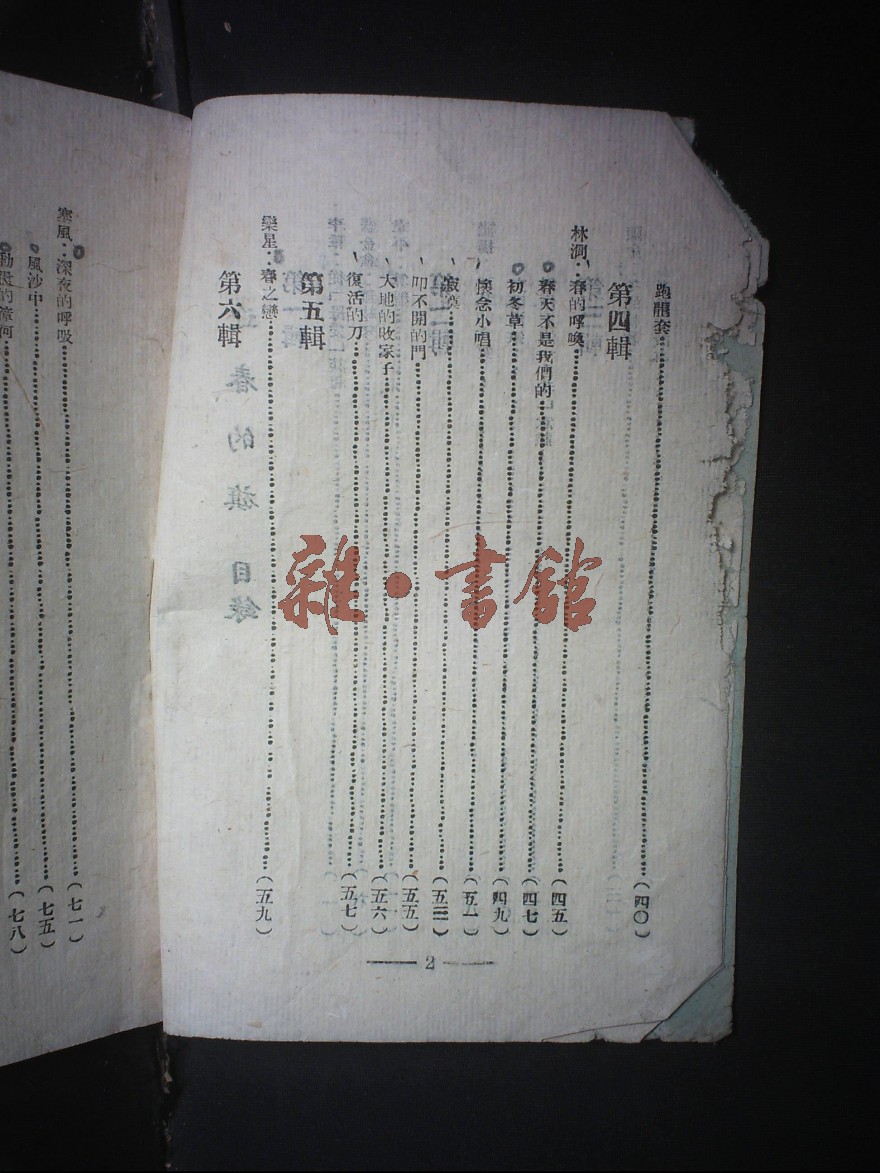 跑龍套……(四〇)
第四輯
林澗：春的呼喚……(四五)
春天不是我們的……(四七)
初冬草……(四九)
懷念小唱……(五一)
寂寞……(五三)
叩不開的門……(五五)
大地的敗家子……(五六)
復活的刀……(五七)
第五輯
欒星：春之戀……(五九)
第六輯
2
塞風：深夜的呼吸……(七一)
風沙中……(七五)
的漳河……(七八)
春的旗 目錄
雜·書館